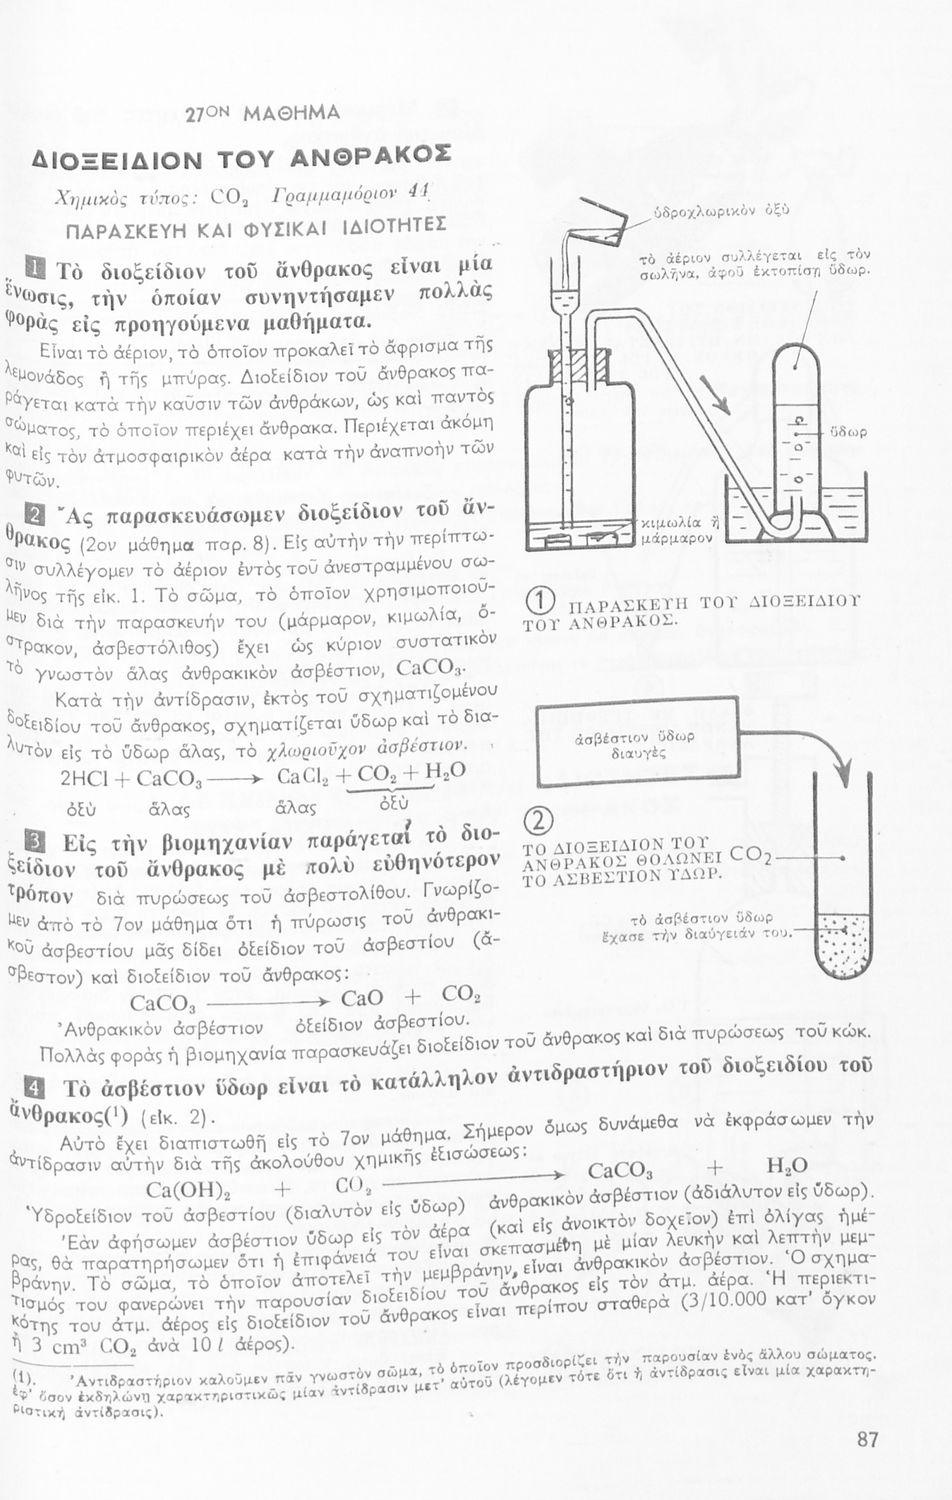 27ΟΝ ΜΑΘΗΜΑ
ΔΙΟΞΕΙΔΙΟΝ ΤΟΥ ΑΝΘΡΑΚΟΣ
Χημικὸς τύπος: CO₂ Γραμμαμόριον 44
ΠΑΡΑΣΚΕΥΗ ΚΑΙ ΦΥΣΙΚΑΙ ΙΔΙΟΤΗΤΕΣ
1 Τὸ διοξείδιον τοῦ ἄνθρακος εἶναι μία
ἕνωσις, τὴν ὁποίαν συνηντήσαμεν πολλὰς
φορὰς εἰς προηγούμενα μαθήματα.
Εἶναι τὸ ἀέριον, τὸ ὁποῖον προκαλεῖ τὸ ἄφρισμα τῆς
λεμονάδος ἢ τῆς μπύρας. Διοξείδιον τοῦ ἄνθρακος πα-
ράγεται κατὰ τὴν καῦσιν τῶν ἀνθράκων, ὡς καὶ παντὸς
σώματος, τὸ ὁποῖον περιέχει ἄνθρακα. Περιέχεται ἀκόμη
καὶ εἰς τὸν ἀτμοσφαιρικὸν ἀέρα κατὰ τὴν ἀναπνοὴν τῶν
φυτῶν.
2 Ἂς παρασκευάσωμεν διοξείδιον τοῦ ἄν-
θρακος (2ον μάθημα παρ. 8). Εἰς αὐτὴν τὴν περίπτω-
σιν συλλέγομεν τὸ ἀέριον ἐντὸς τοῦ ἀνεστραμμένου σω-
λῆνος τῆς εἰκ. 1. Τὸ σῶμα, τὸ ὁποῖον χρησιμοποιοῦ-
μεν διὰ τὴν παρασκευήν του (μάρμαρον, κιμωλία, ὄ-
στρακον, ἀσβεστόλιθος) ἔχει ὡς κύριον συστατικὸν
τὸ γνωστὸν ἅλας ἀνθρακικὸν ἀσβέστιον, CaCO₃.
Κατὰ τὴν ἀντίδρασιν, ἐκτὸς τοῦ σχηματιζομένου
διοξειδίου τοῦ ἄνθρακος, σχηματίζεται ὕδωρ καὶ τὸ δια-
λυτὸν εἰς τὸ ὕδωρ ἅλας, τὸ χλωριοῦχον ἀσβέστιον.
2HCl + CaCO₃ ⟶ CaCl₂ + CO₂ + H₂O
ὀξὺ ἅλας ἅλας ὀξὺ
3 Εἰς τὴν βιομηχανίαν παράγεται τὸ διο-
ξείδιον τοῦ ἄνθρακος μὲ πολὺ εὐθηνότερον
τρόπον διὰ πυρώσεως τοῦ ἀσβεστολίθου. Γνωρίζο-
μεν ἀπὸ τὸ 7ον μάθημα ὅτι ἡ πύρωσις τοῦ ἀνθρακι-
κοῦ ἀσβεστίου μᾶς δίδει ὀξείδιον τοῦ ἀσβεστίου (ἄ-
σβεστον) καὶ διοξείδιον τοῦ ἄνθρακος:
CaCO₃ ⟶ CaO + CO₂
Ἀνθρακικὸν ἀσβέστιον ὀξείδιον ἀσβεστίου.
Πολλὰς φορὰς ἡ βιομηχανία παρασκευάζει διοξείδιον τοῦ ἄνθρακος καὶ διὰ πυρώσεως τοῦ κώκ.
4 Τὸ ἀσβέστιον ὕδωρ εἶναι τὸ κατάλληλον ἀντιδραστήριον τοῦ διοξειδίου τοῦ
ἄνθρακος(¹) (εἰκ. 2).
Αὐτὸ ἔχει διαπιστωθῆ εἰς τὸ 7ον μάθημα. Σήμερον ὅμως δυνάμεθα νὰ ἐκφράσωμεν τὴν
ἀντίδρασιν αὐτὴν διὰ τῆς ἀκολούθου χημικῆς ἐξισώσεως:
Ca(OH)₂ + CO₂ ⟶ CaCO₃ + H₂O
Ὑδροξείδιον τοῦ ἀσβεστίου (διαλυτὸν εἰς ὕδωρ) ἀνθρακικὸν ἀσβέστιον (ἀδιάλυτον εἰς ὕδωρ).
Ἐὰν ἀφήσωμεν ἀσβέστιον ὕδωρ εἰς τὸν ἀέρα (καὶ εἰς ἀνοικτὸν δοχεῖον) ἐπὶ ὀλίγας ἡμέ-
ρας, θὰ παρατηρήσωμεν ὅτι ἡ ἐπιφάνειά του εἶναι σκεπασμένη μὲ μίαν λευκὴν καὶ λεπτὴν μεμ-
βράνην. Τὸ σῶμα, τὸ ὁποῖον ἀποτελεῖ τὴν μεμβράνην, εἶναι ἀνθρακικὸν ἀσβέστιον. Ὁ σχημα-
τισμός του φανερώνει τὴν παρουσίαν διοξειδίου τοῦ ἄνθρακος εἰς τὸν ἀτμ. ἀέρα. Ἡ περιεκτι-
κότης του ἀτμ. ἀέρος εἰς διοξείδιον τοῦ ἄνθρακος εἶναι περίπου σταθερὰ (3/10.000 κατ' ὄγκον
ἢ 3 cm³ CO₂ ἀνὰ 10 l ἀέρος).
(1). Ἀντιδραστήριον καλοῦμεν πᾶν γνωστὸν σῶμα, τὸ ὁποῖον προσδιορίζει τὴν παρουσίαν ἑνὸς ἄλλου σώματος.
ἐφ' ὅσον ἐκδηλώνῃ χαρακτηριστικῶς μίαν ἀντίδρασιν μετ' αὐτοῦ (λέγομεν τότε ὅτι ἡ ἀντίδρασις εἶναι μία χαρακτη-
ριστικὴ ἀντίδρασις).
ὑδροχλωρικὸν ὀξὺ
τὸ ἀέριον συλλέγεται εἰς τὸν
σωλῆνα, ἀφοῦ ἐκτοπίσῃ ὕδωρ.
ὕδωρ
κιμωλία ἢ
μάρμαρον
1 ΠΑΡΑΣΚΕΥΗ ΤΟΥ ΔΙΟΞΕΙΔΙΟΥ
ΤΟΥ ΑΝΘΡΑΚΟΣ.
ἀσβέστιον ὕδωρ
διαυγὲς
2
ΤΟ ΔΙΟΞΕΙΔΙΟΝ ΤΟΥ
ΑΝΘΡΑΚΟΣ ΘΟΛΩΝΕΙ CO₂
ΤΟ ΑΣΒΕΣΤΙΟΝ ΥΔΩΡ.
τὸ ἀσβέστιον ὕδωρ
ἔχασε τὴν διαύγειάν του.
87